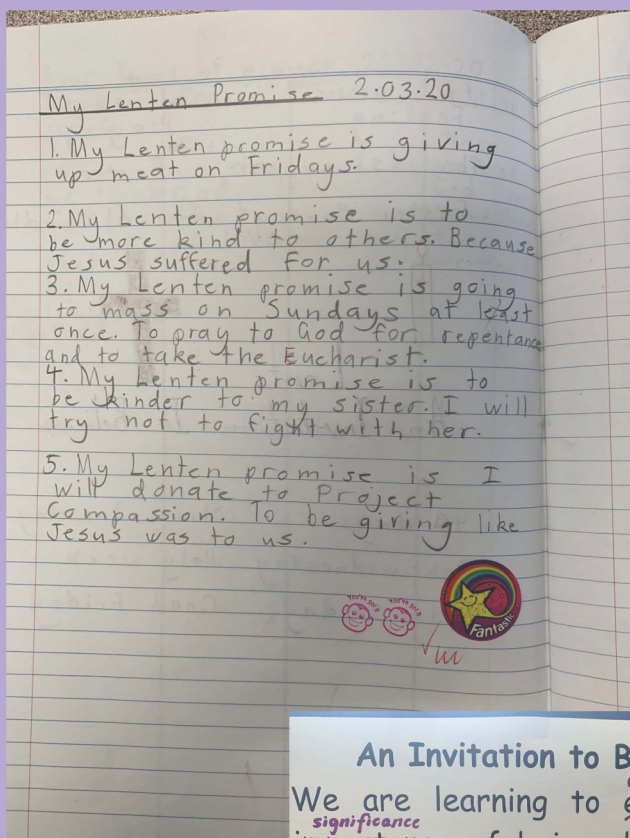 My Lenten Promise 2.03.20
1. My Lenten promise is giving
up meat on Fridays.
2. My Lenten promise is to
be more kind to others. Because
Jesus suffered for us.
3. My Lenten promise is going
to mass on Sundays at least
once. To pray to God for repentance
and to take the Eucharist.
4. My Lenten promise is to
be kinder to my sister. I will
try not to fight with her.
5. My Lenten promise is I
will donate to Project
Compassion. To be giving like
Jesus was to us.
Fantastic
An Invitation to B
We are learning to
significance